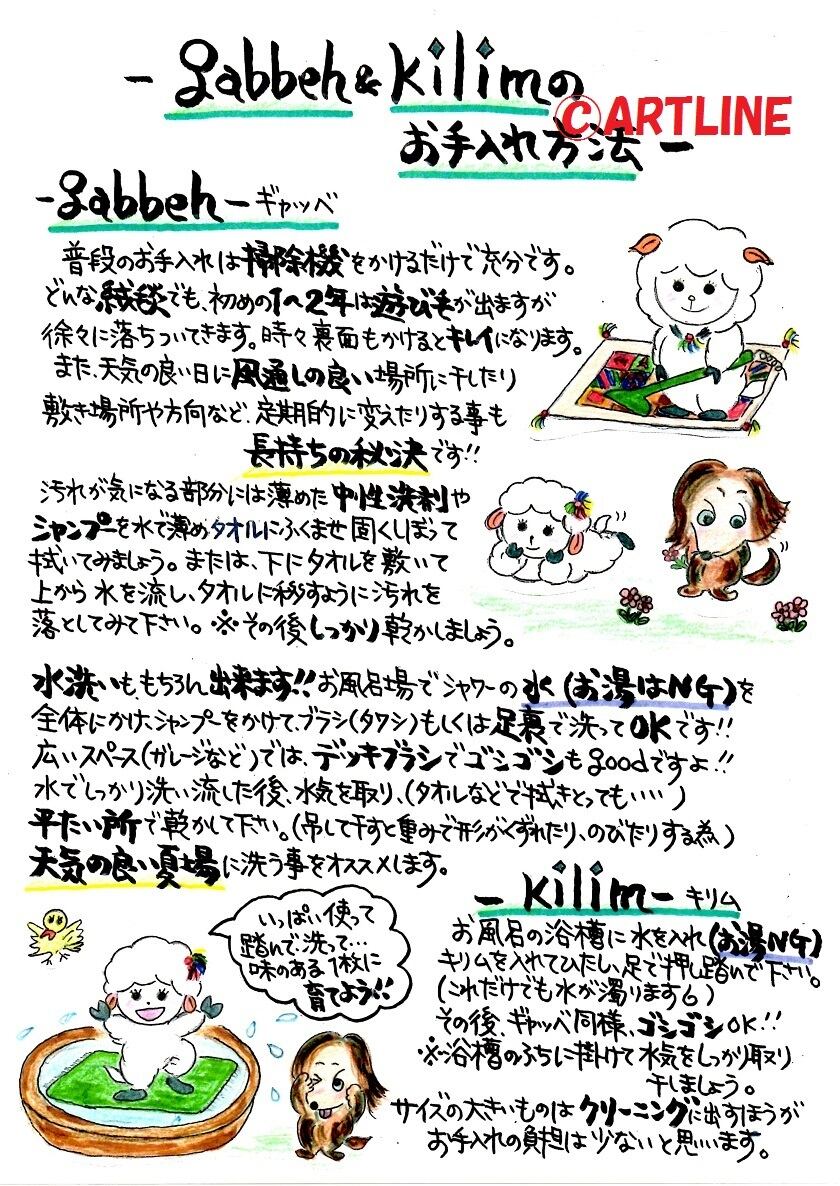 - Gabbeh & Kilimの
©ARTLINE
お手入れ方法 -
- Gabbeh - ギャッベ
普段のお手入れは掃除機をかけるだけで充分です。
どんな絨毯でも、初めの1〜2年は遊び毛が出ますが
徐々に落ちついてきます。時々裏面もかけるとキレイになります。
また、天気の良い日に風通しの良い場所に干したり
敷き場所や方向など、定期的に変えたりする事も
長持ちの秘訣です!!
汚れが気になる部分には薄めた中性洗剤や
シャンプーを水で薄めタオルにふくませ固くしぼって
拭いてみましょう。または、下にタオルを敷いて
上から水を流し、タオルに移すように汚れを
落としてみて下さい。※その後しっかり乾かしましょう。
水洗いも、もちろん出来ます!!お風呂場でシャワーの水(お湯はNG)を
全体にかけ、シャンプーをかけて、ブラシ(タワシ)もしくは足裏で洗ってOKです!!
広いスペース(ガレージなど)では、デッキブラシでゴシゴシもgoodですよ!!
水でしっかり洗い流した後、水気を取り、(タオルなどで拭きとっても・・・・)
平たい所で乾かして下さい。(吊して干すと重みで形がくずれたり、のびたりする為)
天気の良い夏場に洗う事をオススメします。
- Kilim - キリム
お風呂の浴槽に水を入れ(お湯NG)
キリムを入れてひたし、足で押し踏んで下さい。
(これだけでも水が濁ります6)
その後、ギャッベ同様、ゴシゴシOK!!
※浴槽のふちに掛けて水気をしっかり取り
干しましょう。
サイズの大きいものはクリーニングに出すほうが
お手入れの負担は少ないと思います。
いっぱい使って
踏んで、洗って…
味のある1枚に
育てよう!!